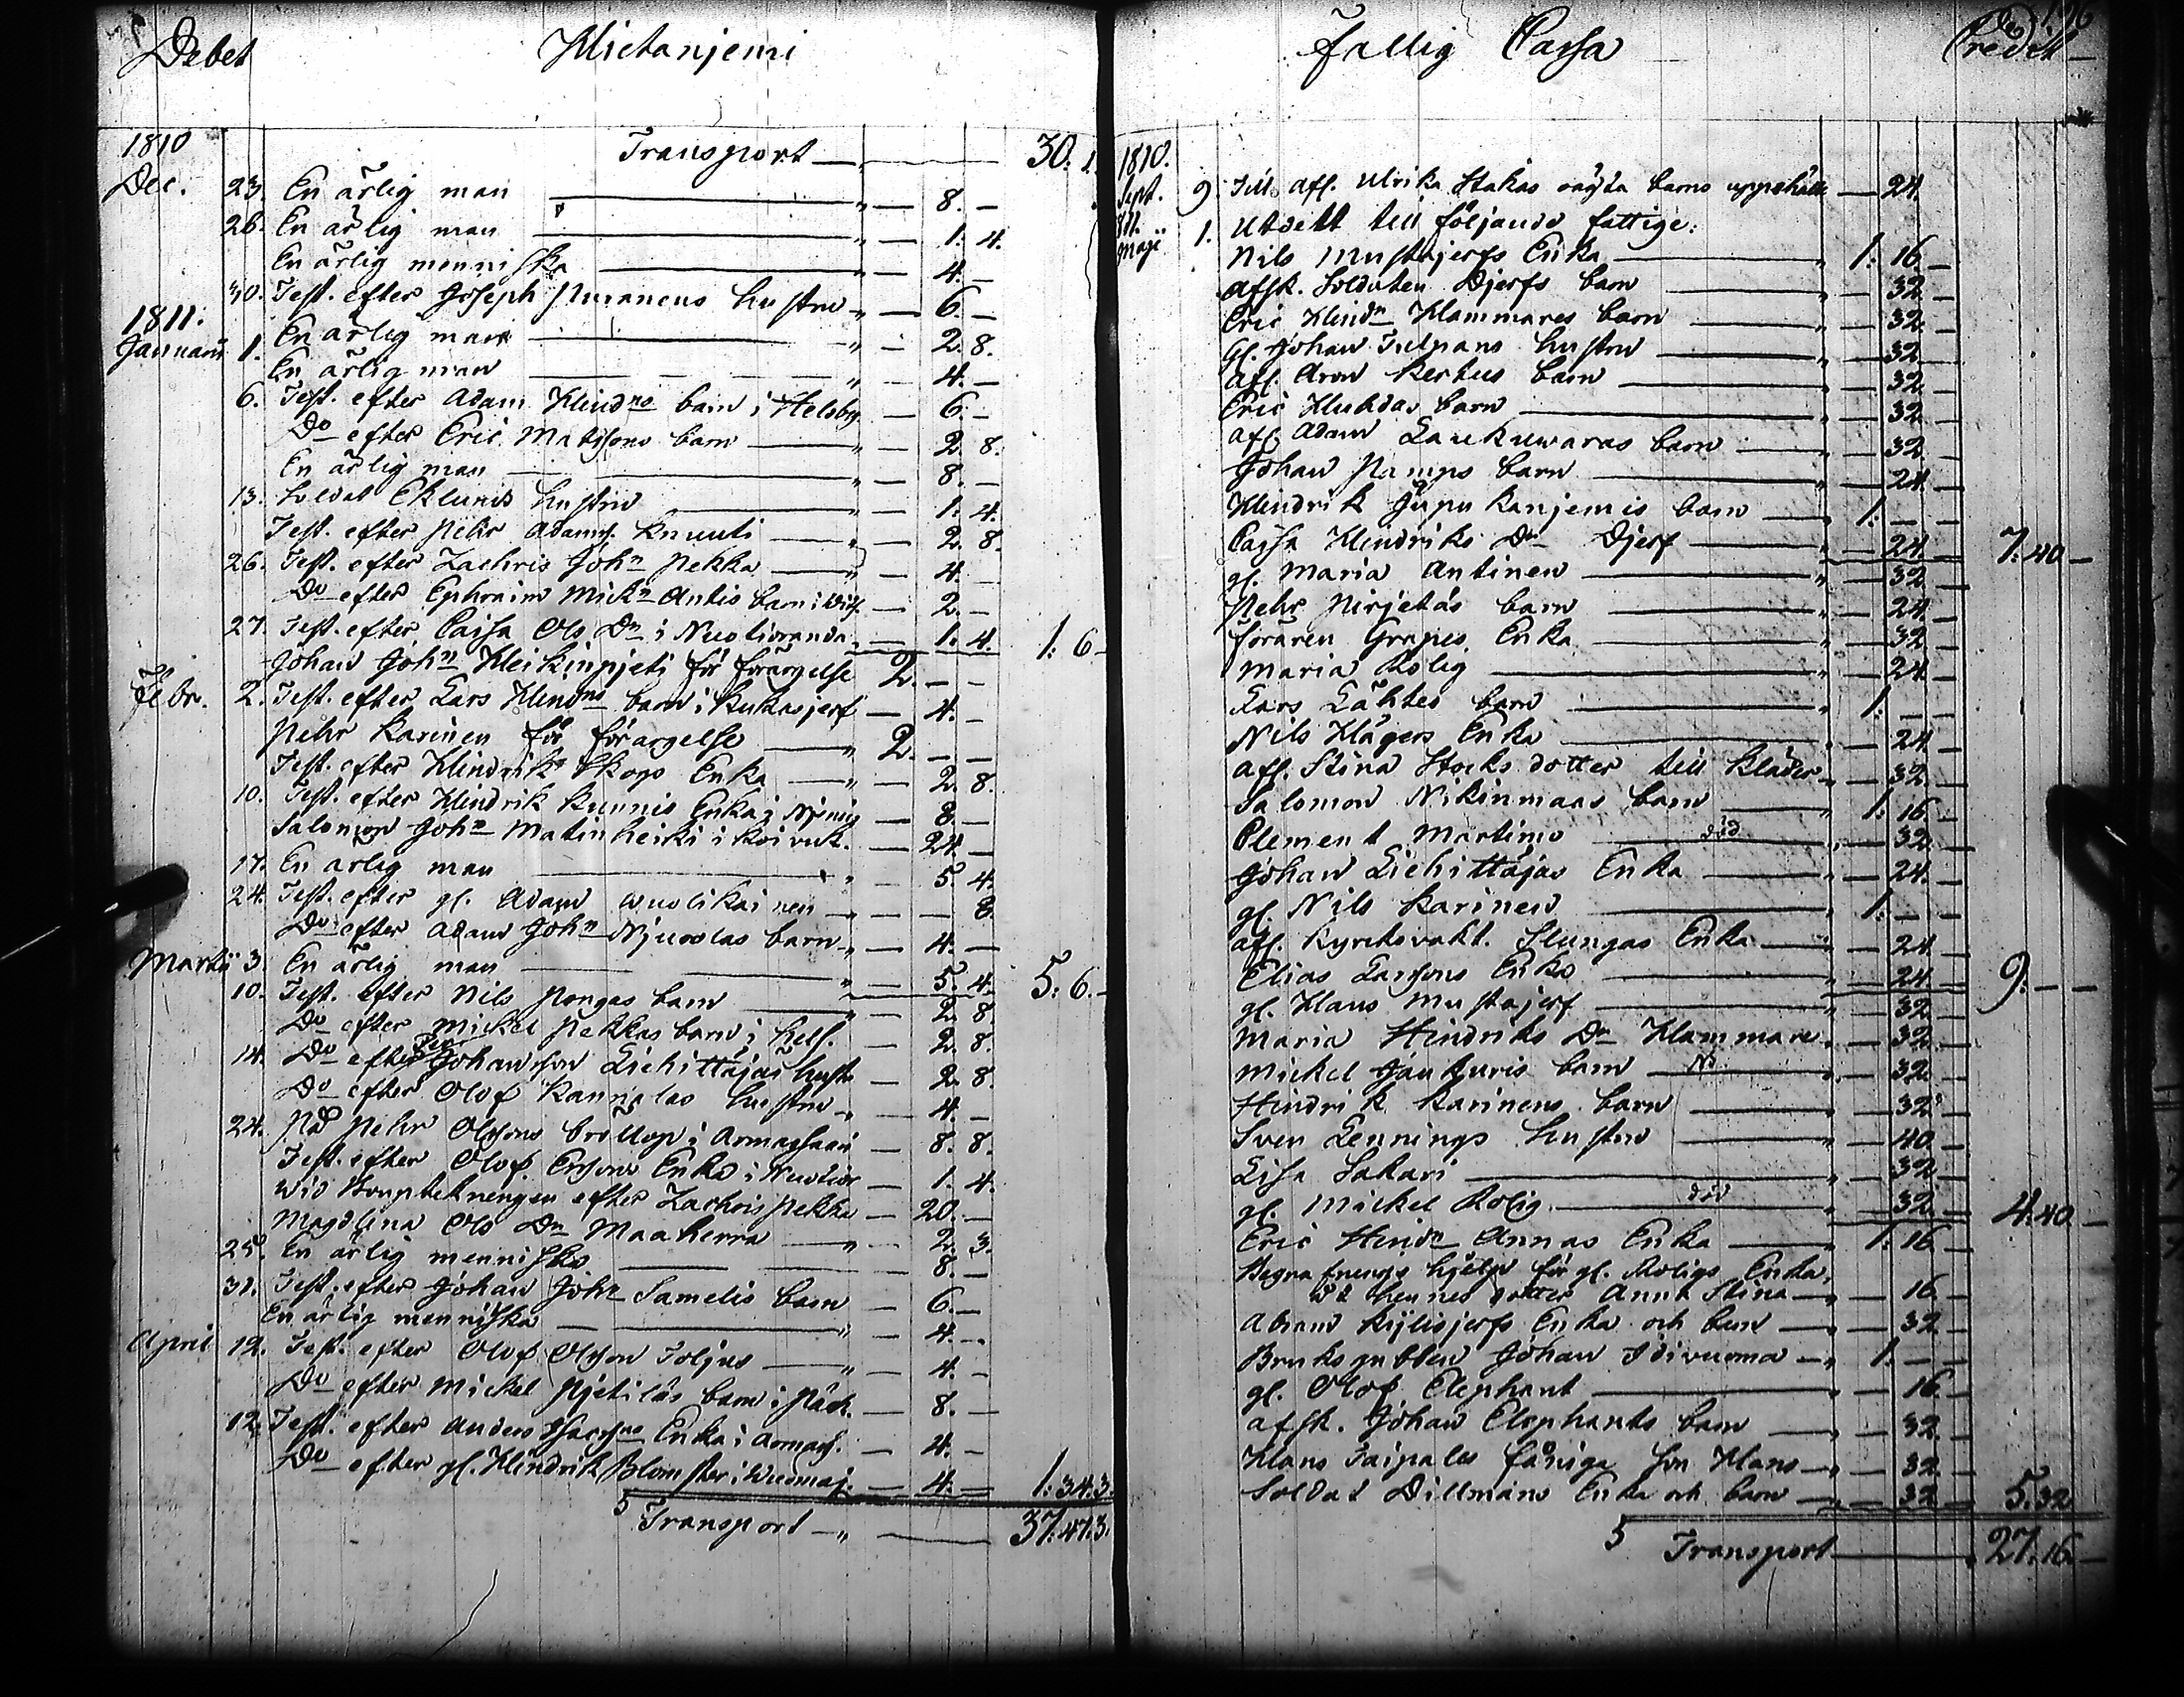 Debet Hietaniemi
1810 Transport — 30. 1.
Dec. 23. En ärlig man — 8. —
26. En ärlig man — 1. 4.
En ärlig menniska — 4. —
30. Test. efter Joseph Puranens hustru — 6. —
1811.
Januarii 1. En ärlig man — 2. 8.
En ärlig man — 4. —
6. Test. efter Adam Hindns barn i Helsby — 6. —
Do efter Eric Matssons barn — 2. 8.
En ärlig man — 8. —
13. Soldat Eklunds hustru — 1. 4.
Test. efter Pehr Adams. Knuuti — 2. 8.
26. Test. efter Zachris John Pekka — 4. —
Do efter Ephraim Mickn Antis barn i — 2. —
27. Test. efter Cajsa Ols Dr i Nuotioranda — 1. 4. 1: 6 —
Johan John Heikinpjeti för förargelse 2. — —
Febr. 2. Test. efter Lars Hindns barn i Kukasjerf — 4. —
Pehr Karinen för förargelse — 2. — —
Test. efter Hindrik Skogs Enka — 2. 8.
10. Test. efter Hindrik Kunnis Enka i Njemis — 8. —
Salomon John Matinheiki i Koivuk. — 24. —
17. En ärlig man — 5. 4.
24. Test. efter gl. Adam Wuolikainen — 8.
Do efter Adam John Njuvolas barn — 4. —
Martii 3. En ärlig man — 5. 4. 5: 6. —
10. Test. efter Nils Pongas barn — 2. 8.
Do efter Mickel Pekkas barn i Hels. — 2. 8.
14. Do efter Johansson Liehittäjäs hustr. — 2. 8.
Do efter Olof Kannalas hustru — 4. —
24. På Pehr Olssons bröllop i Armassaari — 8. 8.
Test. efter Olof Ersons Enka i Nuotior. — 1. 4.
Wid Bouptekningen efter Zachris Pekka — 20. —
Magdlena Ols Dr Maaherra — 2. 3.
25. En ärlig menniska — 8. —
31. Test. efter Johan John Samelis barn — 6. —
En ärlig menniska — 4. —
April 12. Test. efter Olof Olsson Toljus — 4. —
Do efter Mickel Pjetiläs barn i Päck. — 8. —
12. Test. efter Anders Enka i Armass. — 4. —
Do efter gl. Hindrik Blomster i Wuomaj. — 4. — 1: 34. 3.
Transport — 37: 47. 3.
Fattig Cassa Credit
1810.
Sept. 9. Till afl. Ulrika Stakas oägta barns uppehälle — 24.
811.
Maji 1. Utdelt till följande fattige:
Nils Mustajerfs Enka — 1: 16. —
Afsk. Soldaten Djerfs barn — 32. —
Eric Hindn Hammares barn — 32. —
Gl. Johan Tulpans hustru — 32. —
Afl. Aron Kerttus barn — 32. —
Eric Huhdas barn — 32. —
Afl. Adam Laukuwaras barn — 32. —
Johan Pamps barn — 24. —
Hindrik Jupukanjemis barn — 1: — —
Cajsa Hindriks Dr Djerf — 24. — 7: 40 —
gl. Maria Antinen — 32. —
Pehr Pirjetäs barn — 24. —
Föraren Grapes Enka — 32. —
Maria Rolig — 24. —
Lars Lähtes barn — 1: — —
Nils Hägers Enka — 24. —
Afl. Stina Stocks dotter till kläder — 32. —
Salomon Nikinmaas barn — 1: 16. —
Clement Martimo — död — 32. —
Johan Liehittäjäs Enka — 24. —
gl. Nils Karinen — 1: — —
Afl. Kyrkovakt. Slungas Enka — 24. —
Elias Larssons Enka — 24. — 9: — —
gl. Hans Mustajerf — 32. —
Maria Hindriks Dr Hammare — 32. —
Mickel Jaukuris barn — 32. —
Hindrik Karinens barn — 32. —
Sven Lennings hustru — 40. —
Lisa Sakari — 32. —
gl. Mickel Rolig — död — 32. — 4: 40. —
Eric Hindn Annas Enka — 1: 16. —
Begrafnings hjelp för gl. Roligs Enka,
åt hennes dotter Anna Stina — 16. —
Abram Kyläjerfs Enka och barn — 32. —
Bruksgubben Johan — 1: — —
gl. Olof Elephant — 16. —
Afsk. Johan Elephants barn — 32. —
Hans Taipales fåniga Son Hans — 32. —
Soldat Dillmans Enka och barn — 32. — 5: 32
Transport — 27: 16. —